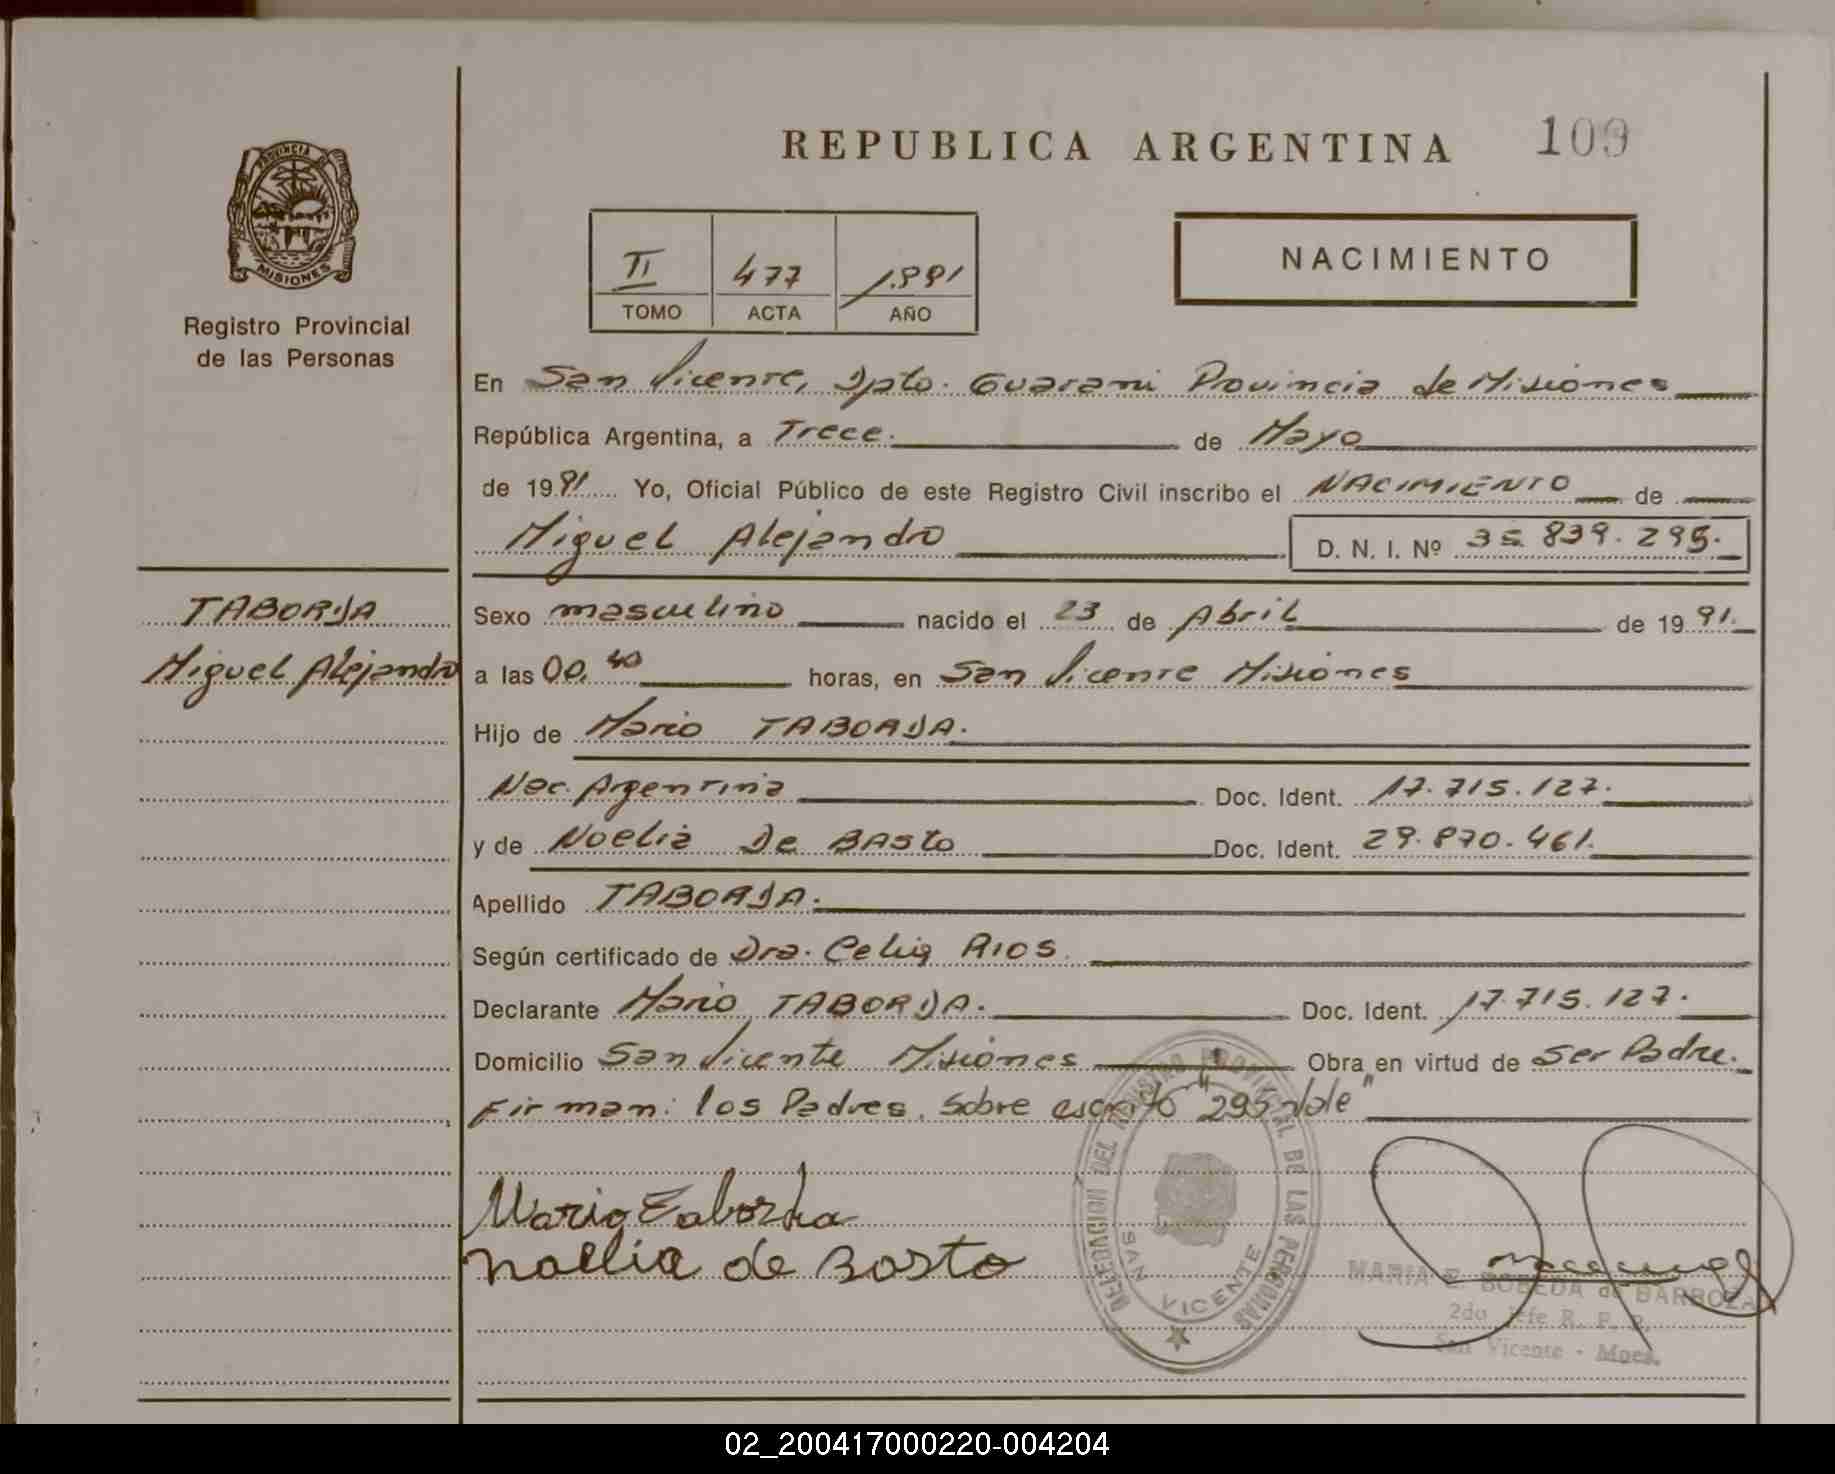 REPUBLICA ARGENTINA 109
PROVINCIA DE
MISIONES
Registro Provincial
de las Personas
II 477 1.991
TOMO ACTA AÑO
NACIMIENTO
En San Vicente, Dpto. Guarani Provincia de Misiones
República Argentina, a Trece. de Mayo
de 1991 Yo, Oficial Público de este Registro Civil inscribo el NACIMIENTO de
Miguel Alejandro D. N. I. Nº 35.839.295.
TABORDA
Miguel Alejandro
Sexo masculino nacido el 23 de Abril de 1991.
a las 00,40 horas, en San Vicente Misiones
Hijo de Mario TABORDA.
Nac. Argentina Doc. Ident. 17.715.127.
y de Noelia De BAsto Doc. Ident. 29.870.461.
Apellido TABORDA.
Según certificado de Dra. Celia RIOS.
Declarante Mario TABORDA. Doc. Ident. 17.715.127.
Domicilio San Vicente Misiones Obra en virtud de Ser Padre.
Firman: los Padres. Sobre escrito "295 vale"
Mario Taborda
Noelia de Basto
DELEGACION DEL REGISTRO PROVINCIAL DE LAS PERSONAS
SAN VICENTE
MARIA E. BOBEDA de BARBOZA
2do. Jefe R. P. P.
San Vicente - Mnes.
02_200417000220-004204